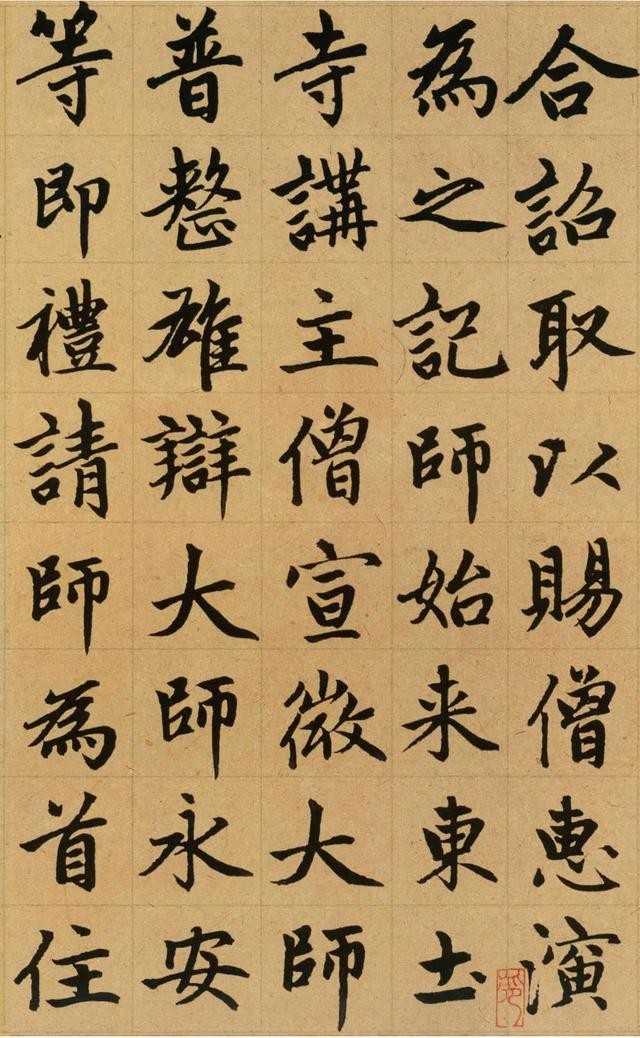 合詔取以賜僧惠演
為之記師始来東土
寺講主僧宣微大師
普整雄辯大師永安
等即禮請師為首住